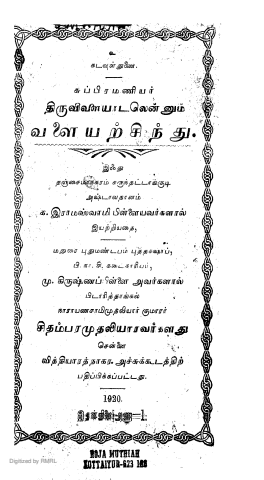 உ
கடவுள் துணை.
சுப்பிரமணியர்
திருவிளையாடலென்னும்
வளையற்சிந்து.
இஃது
தஞ்சைமாநகரம் கருந்தட்டாங்குடி
அஷ்டாவதானம்
க. இராமஸ்வாமி பிள்ளையவர்களால்
இயற்றியதை,
மதுரை புதுமண்டபம் புத்தகஷாப்,
மு. கிருஷ்ணப் பிள்ளை அவர்களால்
பிடாரித்தாங்கல்
நாராயணசாமிமுதலியார் குமாரர்
சிதம்பரமுதலியாரவர்களது
சென்னை
வித்தியாரத்நாகர அச்சுக்கூடத்திற்
பதிப்பிக்கப்பட்டது.
1920.
ROJA MUTHIAH
KOTTAIYUR-623 106
Digitized by RMRL